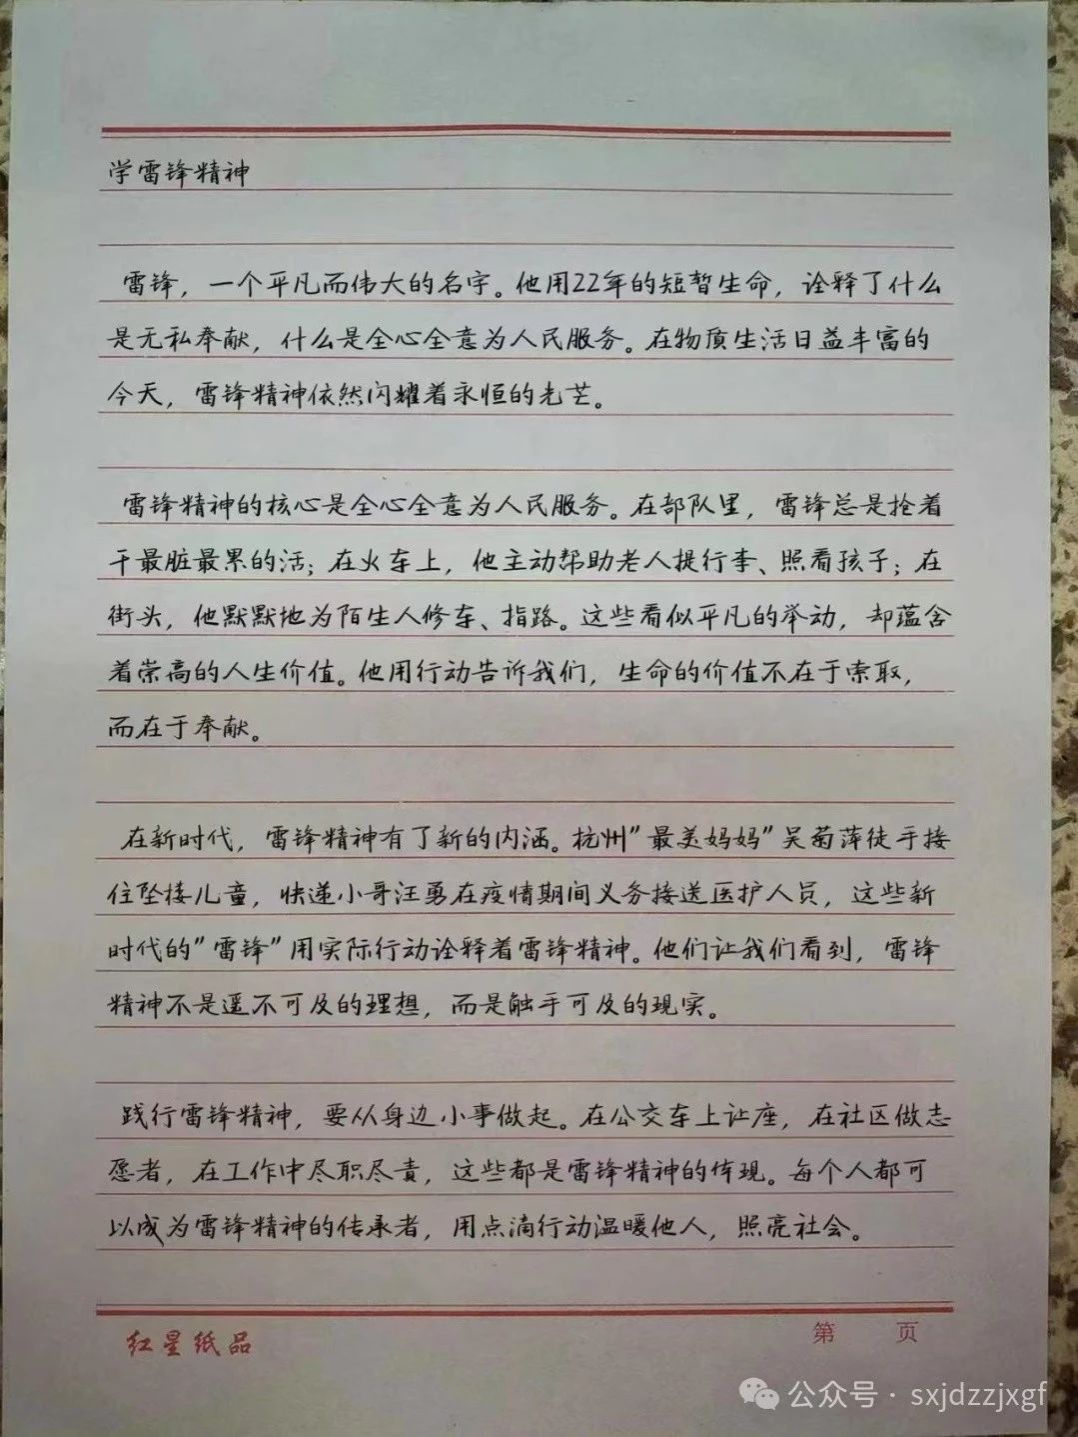 学雷锋精神
雷锋，一个平凡而伟大的名字。他用22年的短暂生命，诠释了什么
是无私奉献，什么是全心全意为人民服务。在物质生活日益丰富的
今天，雷锋精神依然闪耀着永恒的光芒。
雷锋精神的核心是全心全意为人民服务。在部队里，雷锋总是抢着
干最脏最累的活；在火车上，他主动帮助老人提行李、照看孩子；在
街头，他默默地为陌生人修车、指路。这些看似平凡的举动，却蕴含
着崇高的人生价值。他用行动告诉我们，生命的价值不在于索取，
而在于奉献。
在新时代，雷锋精神有了新的内涵。杭州"最美妈妈"吴菊萍徒手接
住坠楼儿童，快递小哥汪勇在疫情期间义务接送医护人员，这些新
时代的"雷锋"用实际行动诠释着雷锋精神。他们让我们看到，雷锋
精神不是遥不可及的理想，而是触手可及的现实。
践行雷锋精神，要从身边小事做起。在公交车上让座，在社区做志
愿者，在工作中尽职尽责，这些都是雷锋精神的体现。每个人都可
以成为雷锋精神的传承者，用点滴行动温暖他人，照亮社会。
红星纸品
第 页
公众号 · sxjdzzjxgf